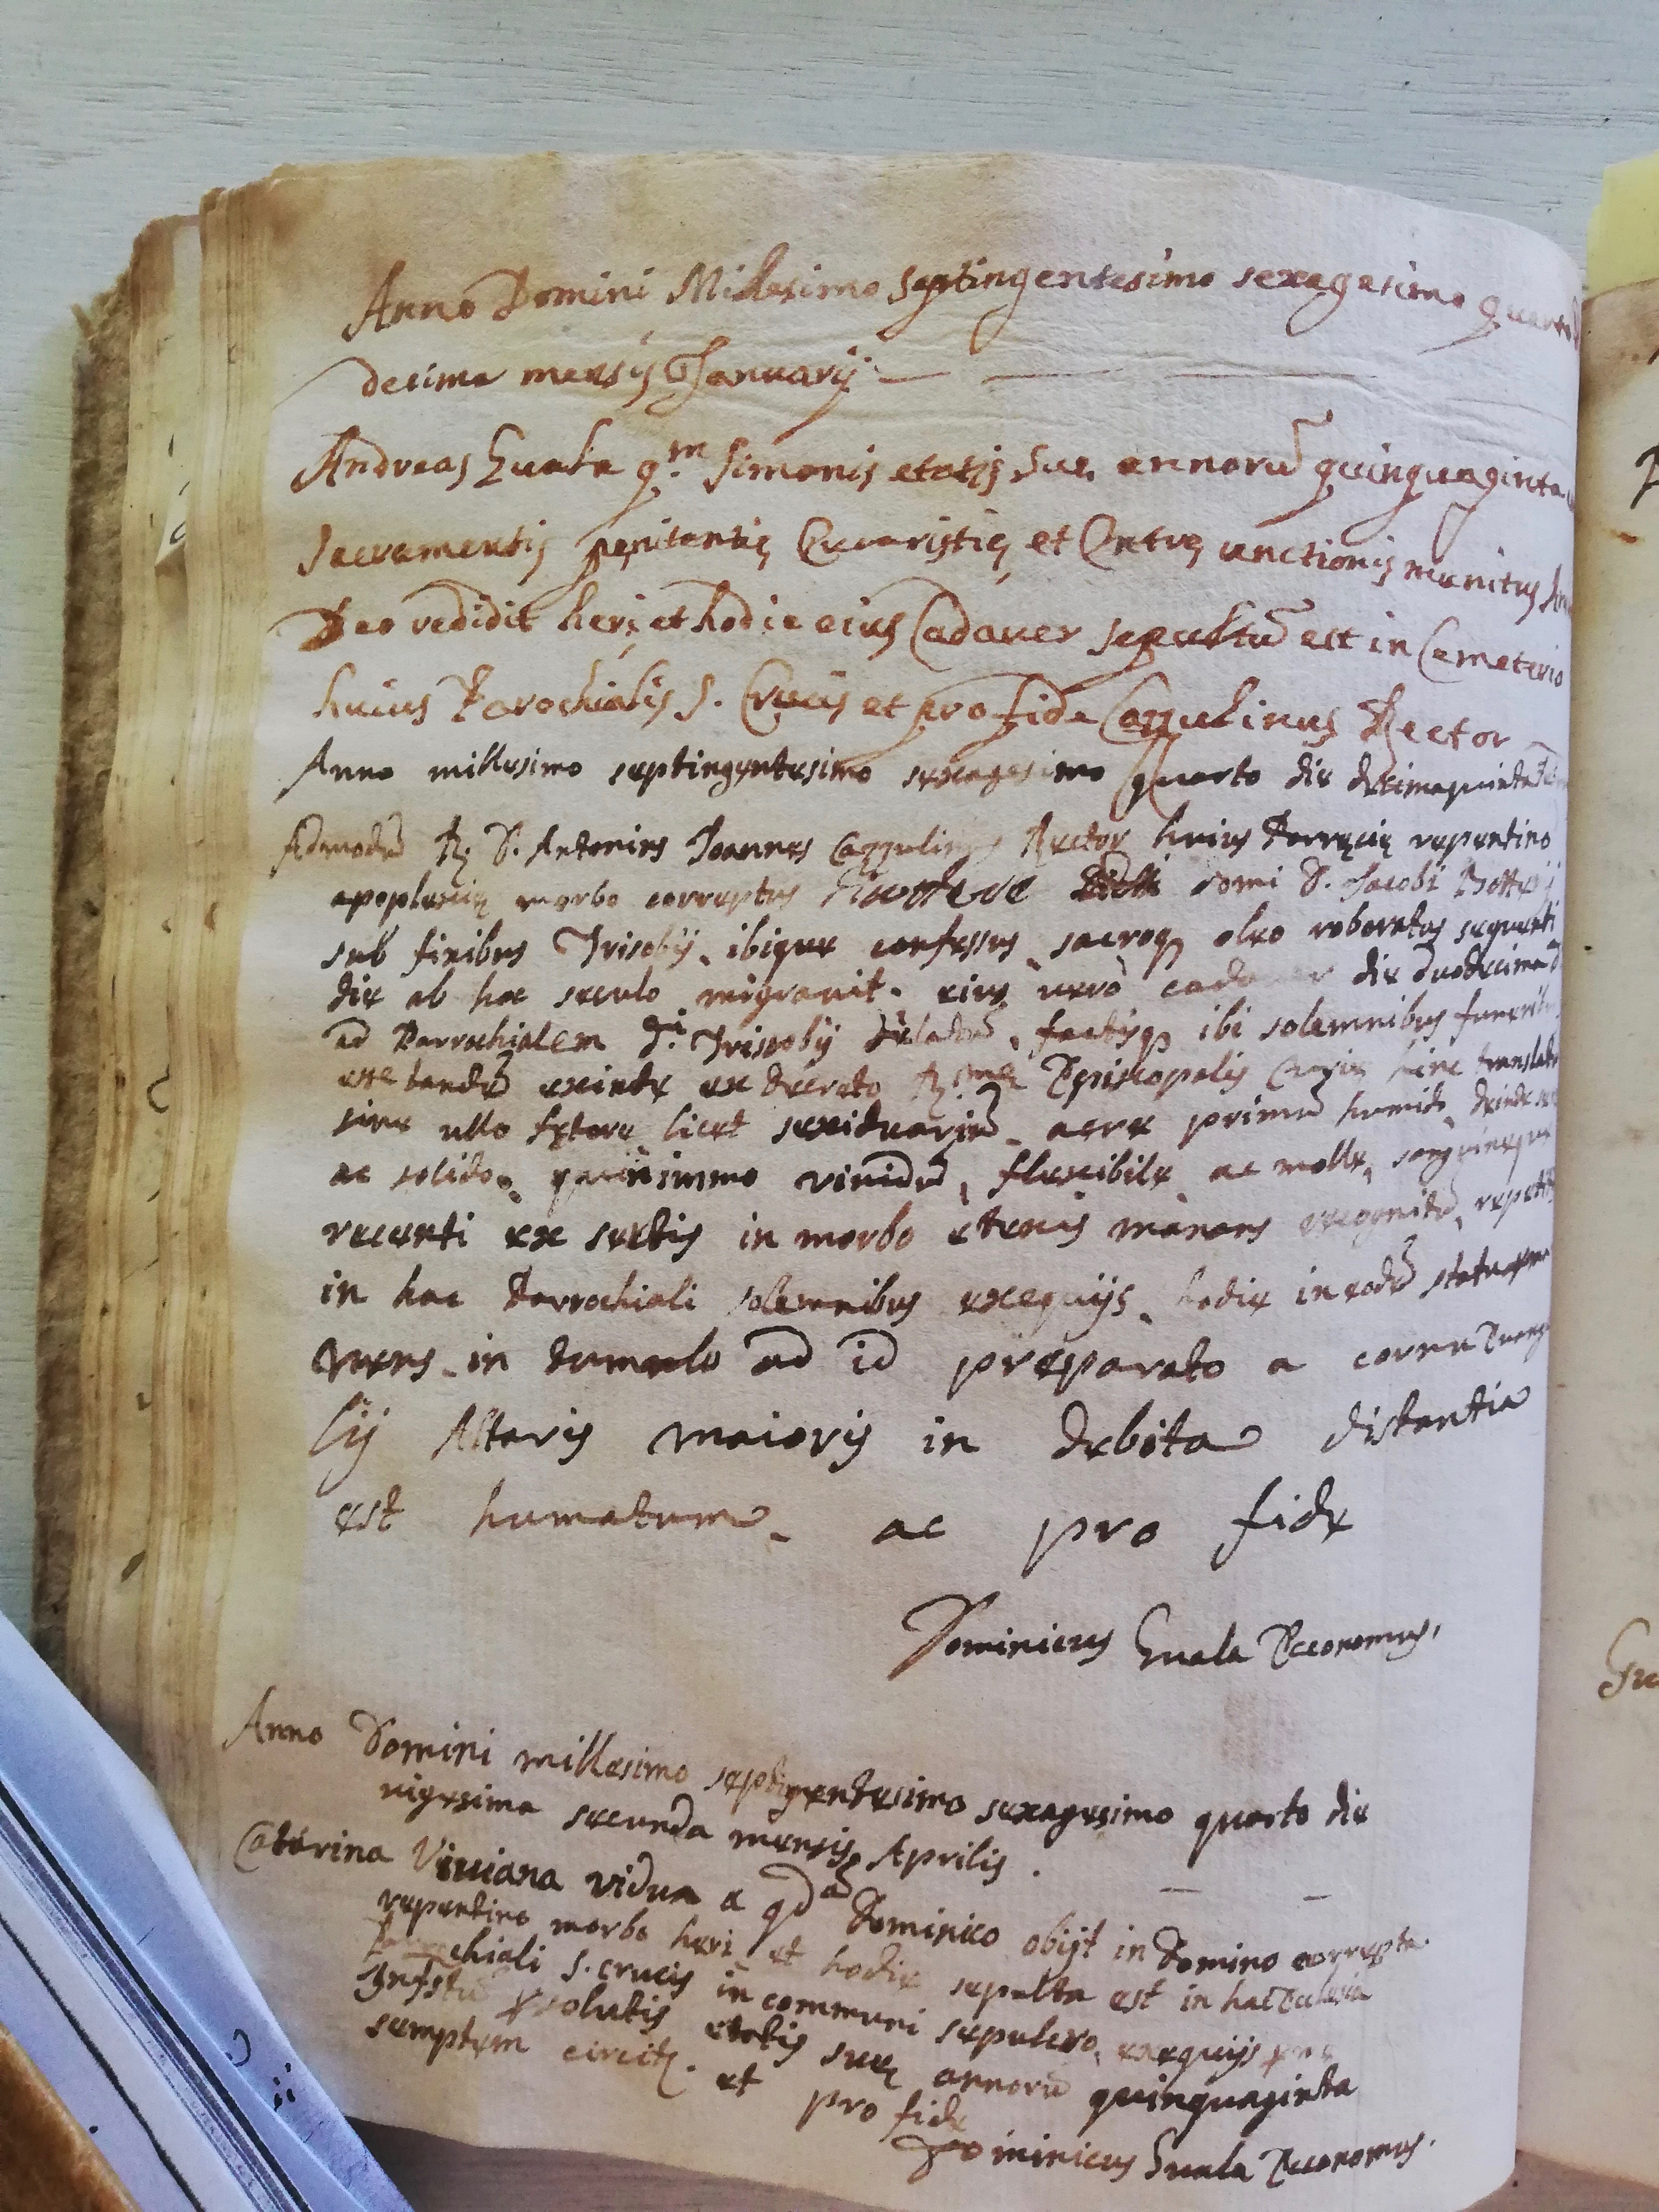 Anno Domini Millesimo septingentesimo sexagesimo quarto
decima mensis Januarij
Andreas Guala qm Simonis etatis suę annorũ quinquaginta
Sacramentis pęnitentię Eucaristię et Extrę unctionis munitus
Deo redidit heri et hodie eius Cadaver sepultũ est in Cemeterio
huius Parochialis S. Crucis et pro fide Cappulinus Rector
Anno millesimo septingentesimo sexagesimo quarto die decimaquinta
Admodũ R. D. Antonius Joannes Cappulinus Rector huius Parręcię repentino
apoplexię morbo correptus domi D. Jacobi
sub finibus Trisobij, ibique confessus, sacroq oleo roboratus sequenti
die ab hoc seculo migravit. eius verò cadaver die duodecima
ad Parrochialem Trisobij delatũ, factisq ibi solemnibus
exinde ex decreto R.mę Episcopalis Curię hinc
sine ullo fętore licet sexiduariũ, aere primũ humido deinde
ac solido, quinimmo vividũ, flexibile, ac molle, sanguineque
recenti ex sectis in morbo venis manans, repetitis
in hac Parrochiali solemnibus exequijs, hodie in eodẽ statu
in tumulo ad id preparato a cornu Evange
lij Altaris maioris in debita distantia
est humatum, ac pro fide
Dominicus Guala Economus.
Anno Domini millesimo septingentesimo sexagesimo quarto die
vigesima secunda mensis Aprilis.
Catarina Viviana vidua a qdã Dominico obijt in Domino correpta
repentino morbo heri et hodie sepulta est in hac Ecclesia
Parrochiali S. Crucis in communi sepulcro, exequijs
persolutis etatis suę annorũ quinquaginta
septem circitẽ. et pro fide
Dominicus Guala Economus.